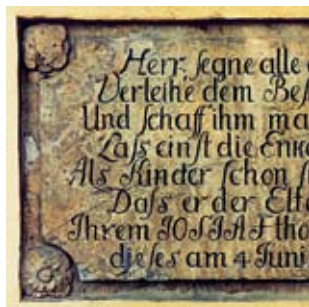 Herr, ſegne alle
Verleihe dem Beſ
Und ſchaff ihm ma
Laſs einſt die Enke
Als Kinder ſchon
Daſs er der Elte
Ihrem JOSIAS tho
dieſes am 4 Juni